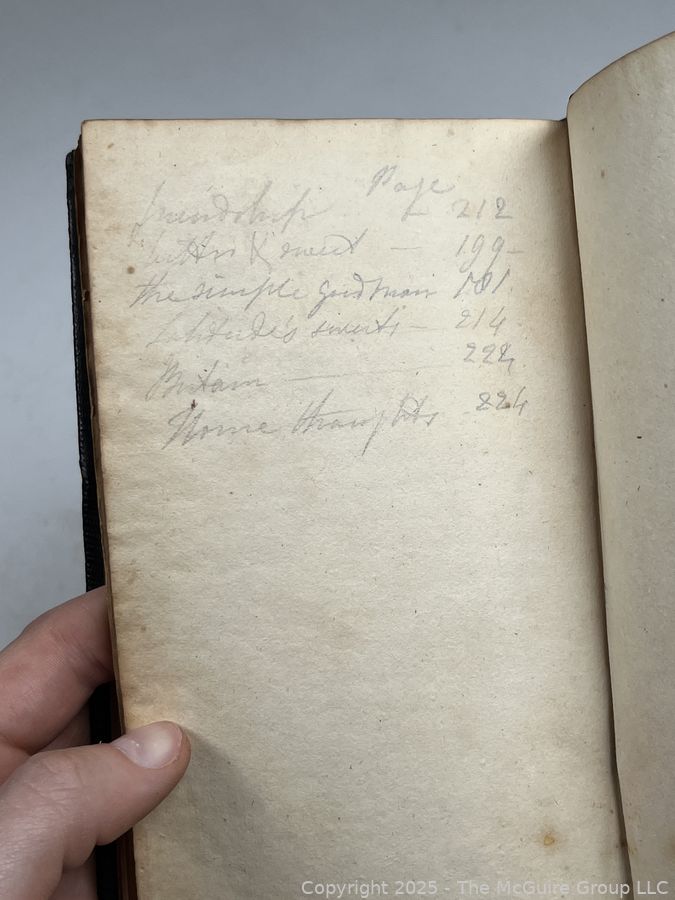 Page
friendship - 212
bitter & sweet - 199-
the simple good man 181
Solitude's sweets - 214
Britain 222
Home thoughts - 224
Copyright 2025 - The McGuire Group LLC